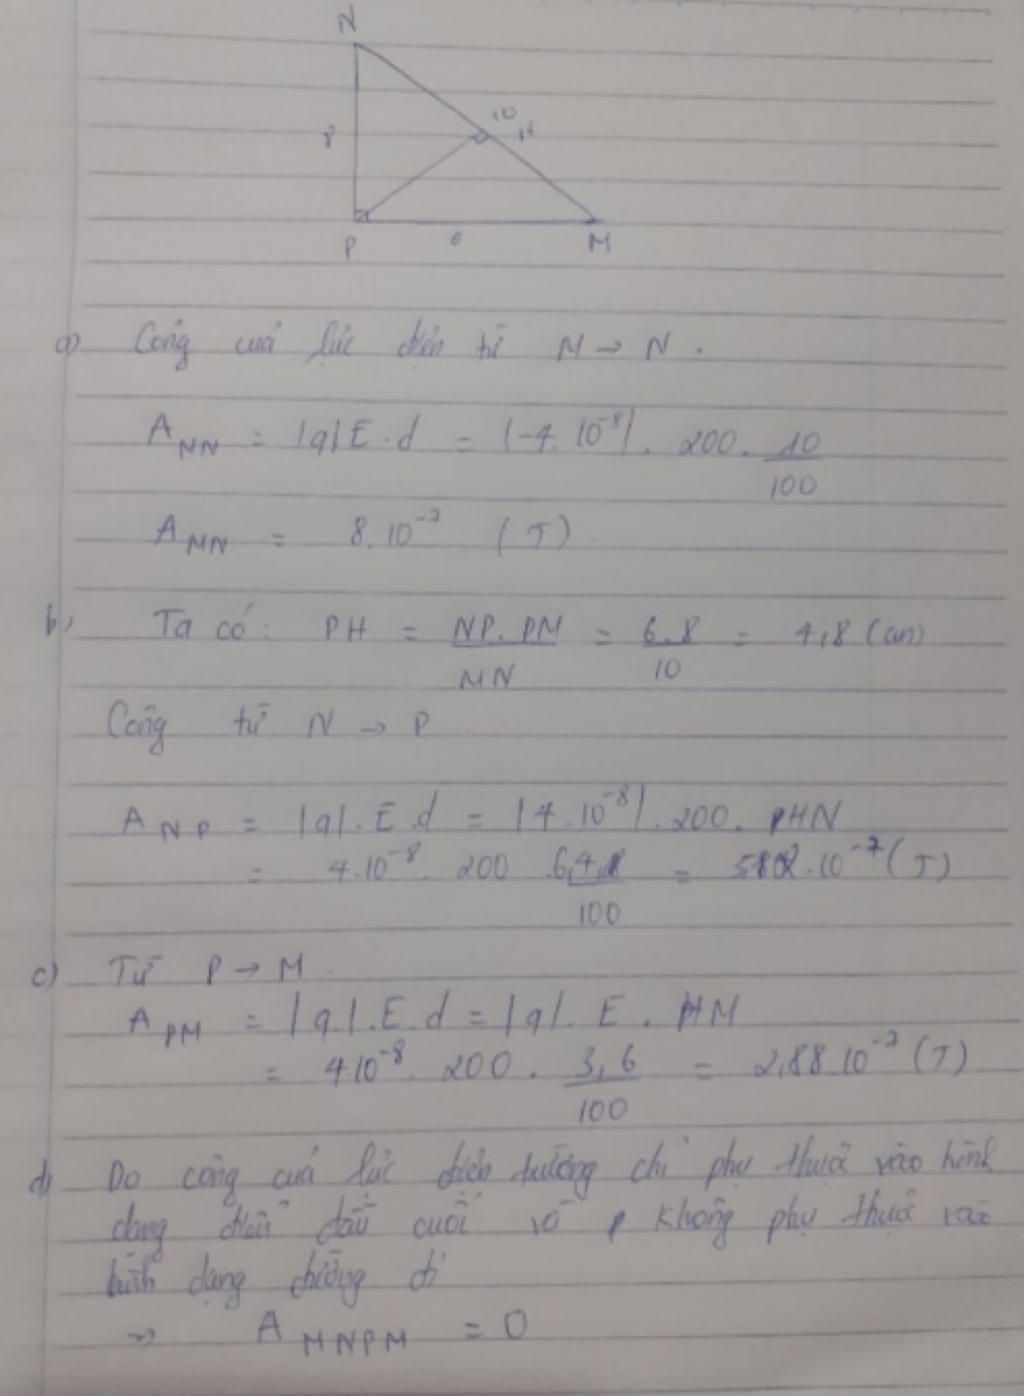 N
8
10
H
P
6
M
a) Công cuả lực điện từ M → N.
A_NN = |q|E.d = |-4.10^-8|. 200. 10/100
A_MN = 8.10^-7 (J)
b, Ta có: PH = NP.PM/MN = 6.8/10 = 4,8 (cm)
Công từ N → P
A_NP = |q|.E.d = |4.10^-8|.200. HN
= 4.10^-8. 200 .6,4/100 = 5,12.10^-7 (J)
c) Từ P → M.
A_PM = |q|.E.d = |q|. E. HM
= 4 10^-8. 200 . 3,6/100 = 2,88 10^-7 (J)
d) Do công cuả lực điện trường chỉ phụ thuộc vào hình
dạng điểm đầu cuối và không phụ thuộc vào
hình dạng đường đi
=> A_MNPM = 0